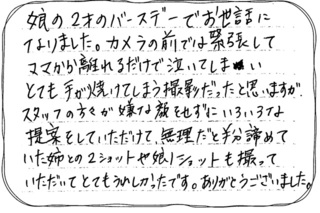 娘の2才のバースデーでお世話に
なりました。カメラの前では緊張して
ママから離れるだけで泣いてしまい
とても手が焼けてしまう撮影だったと思いますが、
スタッフの方々が嫌な顔をせずにいろいろな
提案をしていただけて、無理だと半分諦めて
いた姉との2ショットや娘1ショットも撮って
いただいてとてもうれしかったです。ありがとうございました。